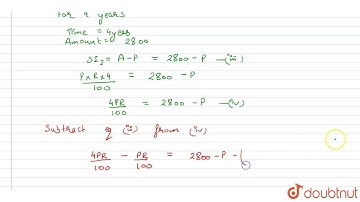 For 4 years
Time = 4yers
Amount = 2800
SI₂ = A-P = 2800-P —(iii)
P×R×4/100 = 2800 -P
4PR/100 = 2800 -P —(iv)
Subtract eq (iii) from (iv)
4PR/100 - PR/100 = 2800-P-(
doubtnut